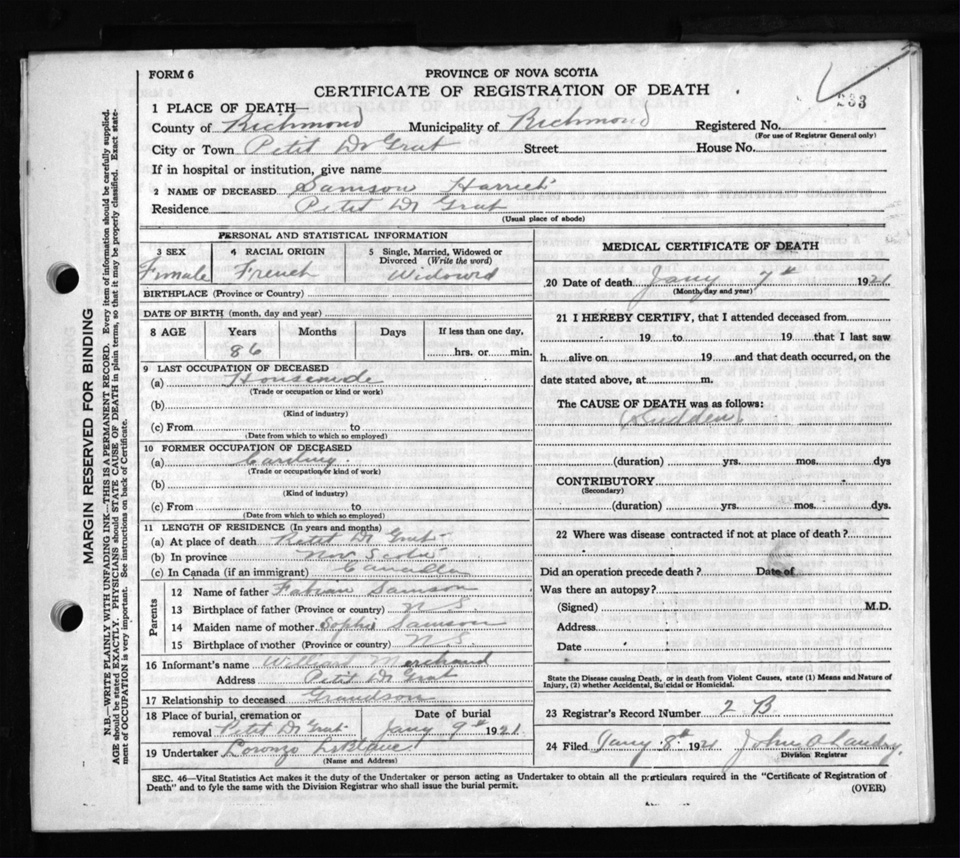 FORM 6
PROVINCE OF NOVA SCOTIA
CERTIFICATE OF REGISTRATION OF DEATH
283
1 PLACE OF DEATH—
County of Richmond Municipality of Richmond Registered No.
(For use of Registrar General only)
City or Town Petit Dr Grat Street House No.
If in hospital or institution, give name
2 NAME OF DECEASED Samson Harriet
Residence Petit Dr Grat
(Usual place of abode)
PERSONAL AND STATISTICAL INFORMATION
3 SEX 4 RACIAL ORIGIN 5 Single, Married, Widowed or Divorced (Write the word)
Female French Widowed
BIRTHPLACE (Province or Country)
DATE OF BIRTH (month, day and year)
8 AGE Years Months Days If less than one day,
86 hrs. or min.
9 LAST OCCUPATION OF DECEASED
(a) Housewife
(Trade or occupation or kind or work)
(b)
(Kind of industry)
(c) From to
(Date from which to which so employed)
10 FORMER OCCUPATION OF DECEASED
(a)
(Trade or occupation or kind of work)
(b)
(Kind of industry)
(c) From to
(Date from which to which so employed)
11 LENGTH OF RESIDENCE (In years and months)
(a) At place of death Petit Dr Grat
(b) In province Nov Scotia
(c) In Canada (if an immigrant) Canada
Parents
12 Name of father Fabian Samson
13 Birthplace of father (Province or country) N S
14 Maiden name of mother Sophie Samson
15 Birthplace of mother (Province or country) N. S
16 Informant's name William Marchand
Address Petit Dr Grat
17 Relationship to deceased Grandson
18 Place of burial, cremation or Date of burial
removal Petit Dr Grat Jany 9th 1921.
19 Undertaker Lorenzo LeBlanc
(Name and Address)
MEDICAL CERTIFICATE OF DEATH
20 Date of death Jany 7th 1921
(Month, day and year)
21 I HEREBY CERTIFY, that I attended deceased from
19 to 19 that I last saw
h alive on 19 and that death occurred, on the
date stated above, at m.
The CAUSE OF DEATH was as follows:
(Sudden)
(duration) yrs. mos. dys
CONTRIBUTORY
(Secondary)
(duration) yrs. mos. dys.
22 Where was disease contracted if not at place of death?
Did an operation precede death? Date of
Was there an autopsy?
(Signed) M.D.
Address
Date
State the Disease causing Death, or in death from Violent Causes, state (1) Means and Nature of
Injury, (2) whether Accidental, Suicidal or Homicidal.
23 Registrar's Record Number 2 B
24 Filed Jany 8th 1921 John A Landry
Division Registrar
SEC. 46—Vital Statistics Act makes it the duty of the Undertaker or person acting as Undertaker to obtain all the particulars required in the "Certificate of Registration of
Death" and to fyle the same with the Division Registrar who shall issue the burial permit.
(OVER)
MARGIN RESERVED FOR BINDING
N.B.—WRITE PLAINLY WITH UNFADING INK—THIS IS A PERMANENT RECORD. Every item of information should be carefully supplied.
AGE should be stated EXACTLY. PHYSICIANS should STATE CAUSE OF DEATH in plain terms, so that it may be properly classified. Exact state-
ment of OCCUPATION is very important. See instructions on back of Certificate.